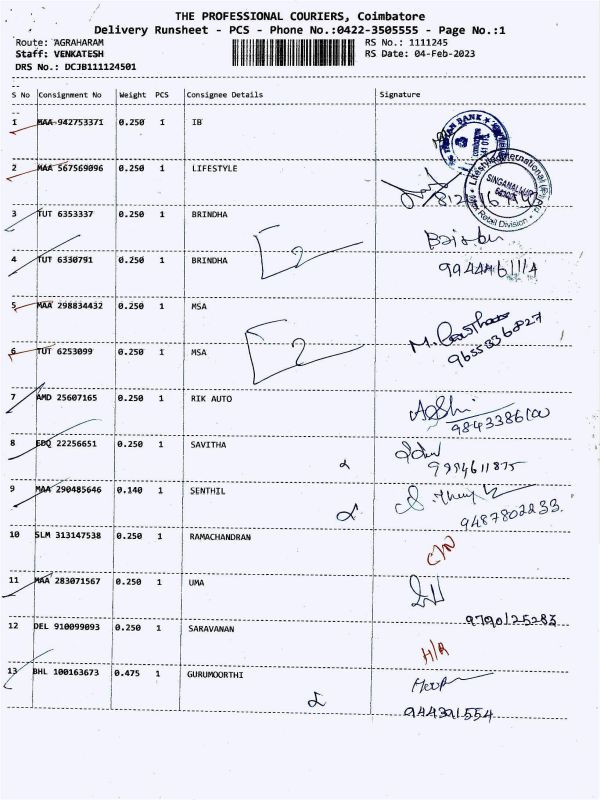 THE PROFESSIONAL COURIERS, Coimbatore
Delivery Runsheet - PCS - Phone No.:0422-3505555 - Page No.:1
Route: AGRAHARAM RS No.: 1111245
Staff: VENKATESH RS Date: 04-Feb-2023
DRS No.: DCJB111124501
S No Consignment No Weight PCS Consignee Details Signature
1 MAA 942753371 0.250 1 IB
2 MAA 567569096 0.250 1 LIFESTYLE
3 TUT 6353337 0.250 1 BRINDHA
4 TUT 6330791 0.250 1 BRINDHA 2
5 MAA 298834432 0.250 1 MSA
6 TUT 6253099 0.250 1 MSA 2
7 AMD 25607165 0.250 1 RIK AUTO 9843386100
8 EDQ 22256651 0.250 1 SAVITHA
9 MAA 290485646 0.140 1 SENTHIL 9487802233.
10 SLM 313147538 0.250 1 RAMACHANDRAN C/N
11 MAA 283071567 0.250 1 UMA 9790125283
12 DEL 910099093 0.250 1 SARAVANAN H/R
13 BHL 100163673 0.475 1 GURUMOORTHI 944391554